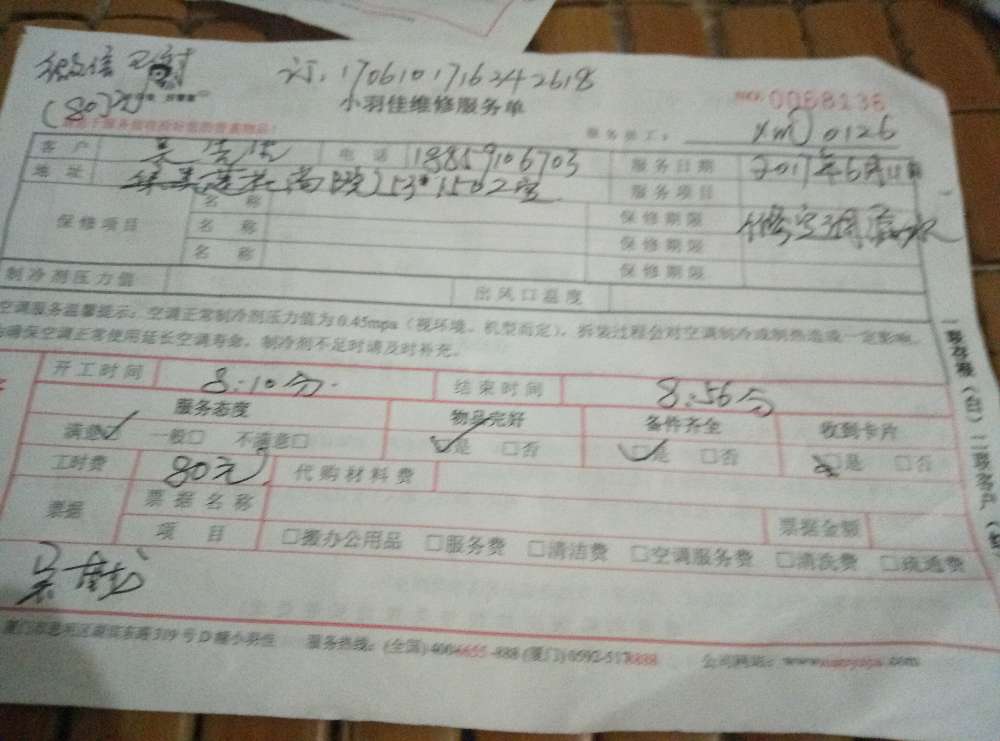 微信已付
订:1706101716242618
(80元)
小羽佳维修服务单
0068136
服务技工: xm 0126
客户 电话 18859106703 服务日期 2017年6月11日
地址 153#1502室 服务项目
保修项目 名称 保修期限 修空调漏水
名称 保修期限
名称 保修期限
制冷剂压力值 出风口温度
空调服务温馨提示:空调正常制冷剂压力值为0.45mpa(视环境、机型而定),拆装过程会对空调制冷或制热造成一定影响,
确保空调正常使用延长空调寿命,制冷剂不足时请及时补充。
开工时间 8:10分 结束时间 8:56分
服务态度 物品完好 备件齐全 收到卡片
满意☑ 一般□ 不满意□ ☑是 □否 ☑是 □否 ☑是 □否
工时费 80元 代购材料费
票据 票据名称 票据金额
项目 □搬办公用品 □服务费 □清洁费 □空调服务费 □清洗费 □疏通费
319号D幢小羽佳 服务热线:(全国)4006655-888 (厦门)0592-5178888 公司网站:www.xiaoyujia.com
一联存根(白)二联客户